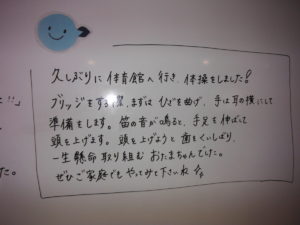 久しぶりに体育館へ行き、体操をしました！
ブリッジをする際、まずはひざを曲げ、手は耳の横にして
準備をします。笛の音が鳴ると、手足を伸ばして
頭を上げます。頭を上げようと歯をくいしばり、
一生懸命取り組むおたまちゃんでした。
ぜひご家庭でもやってみて下さいね
た。